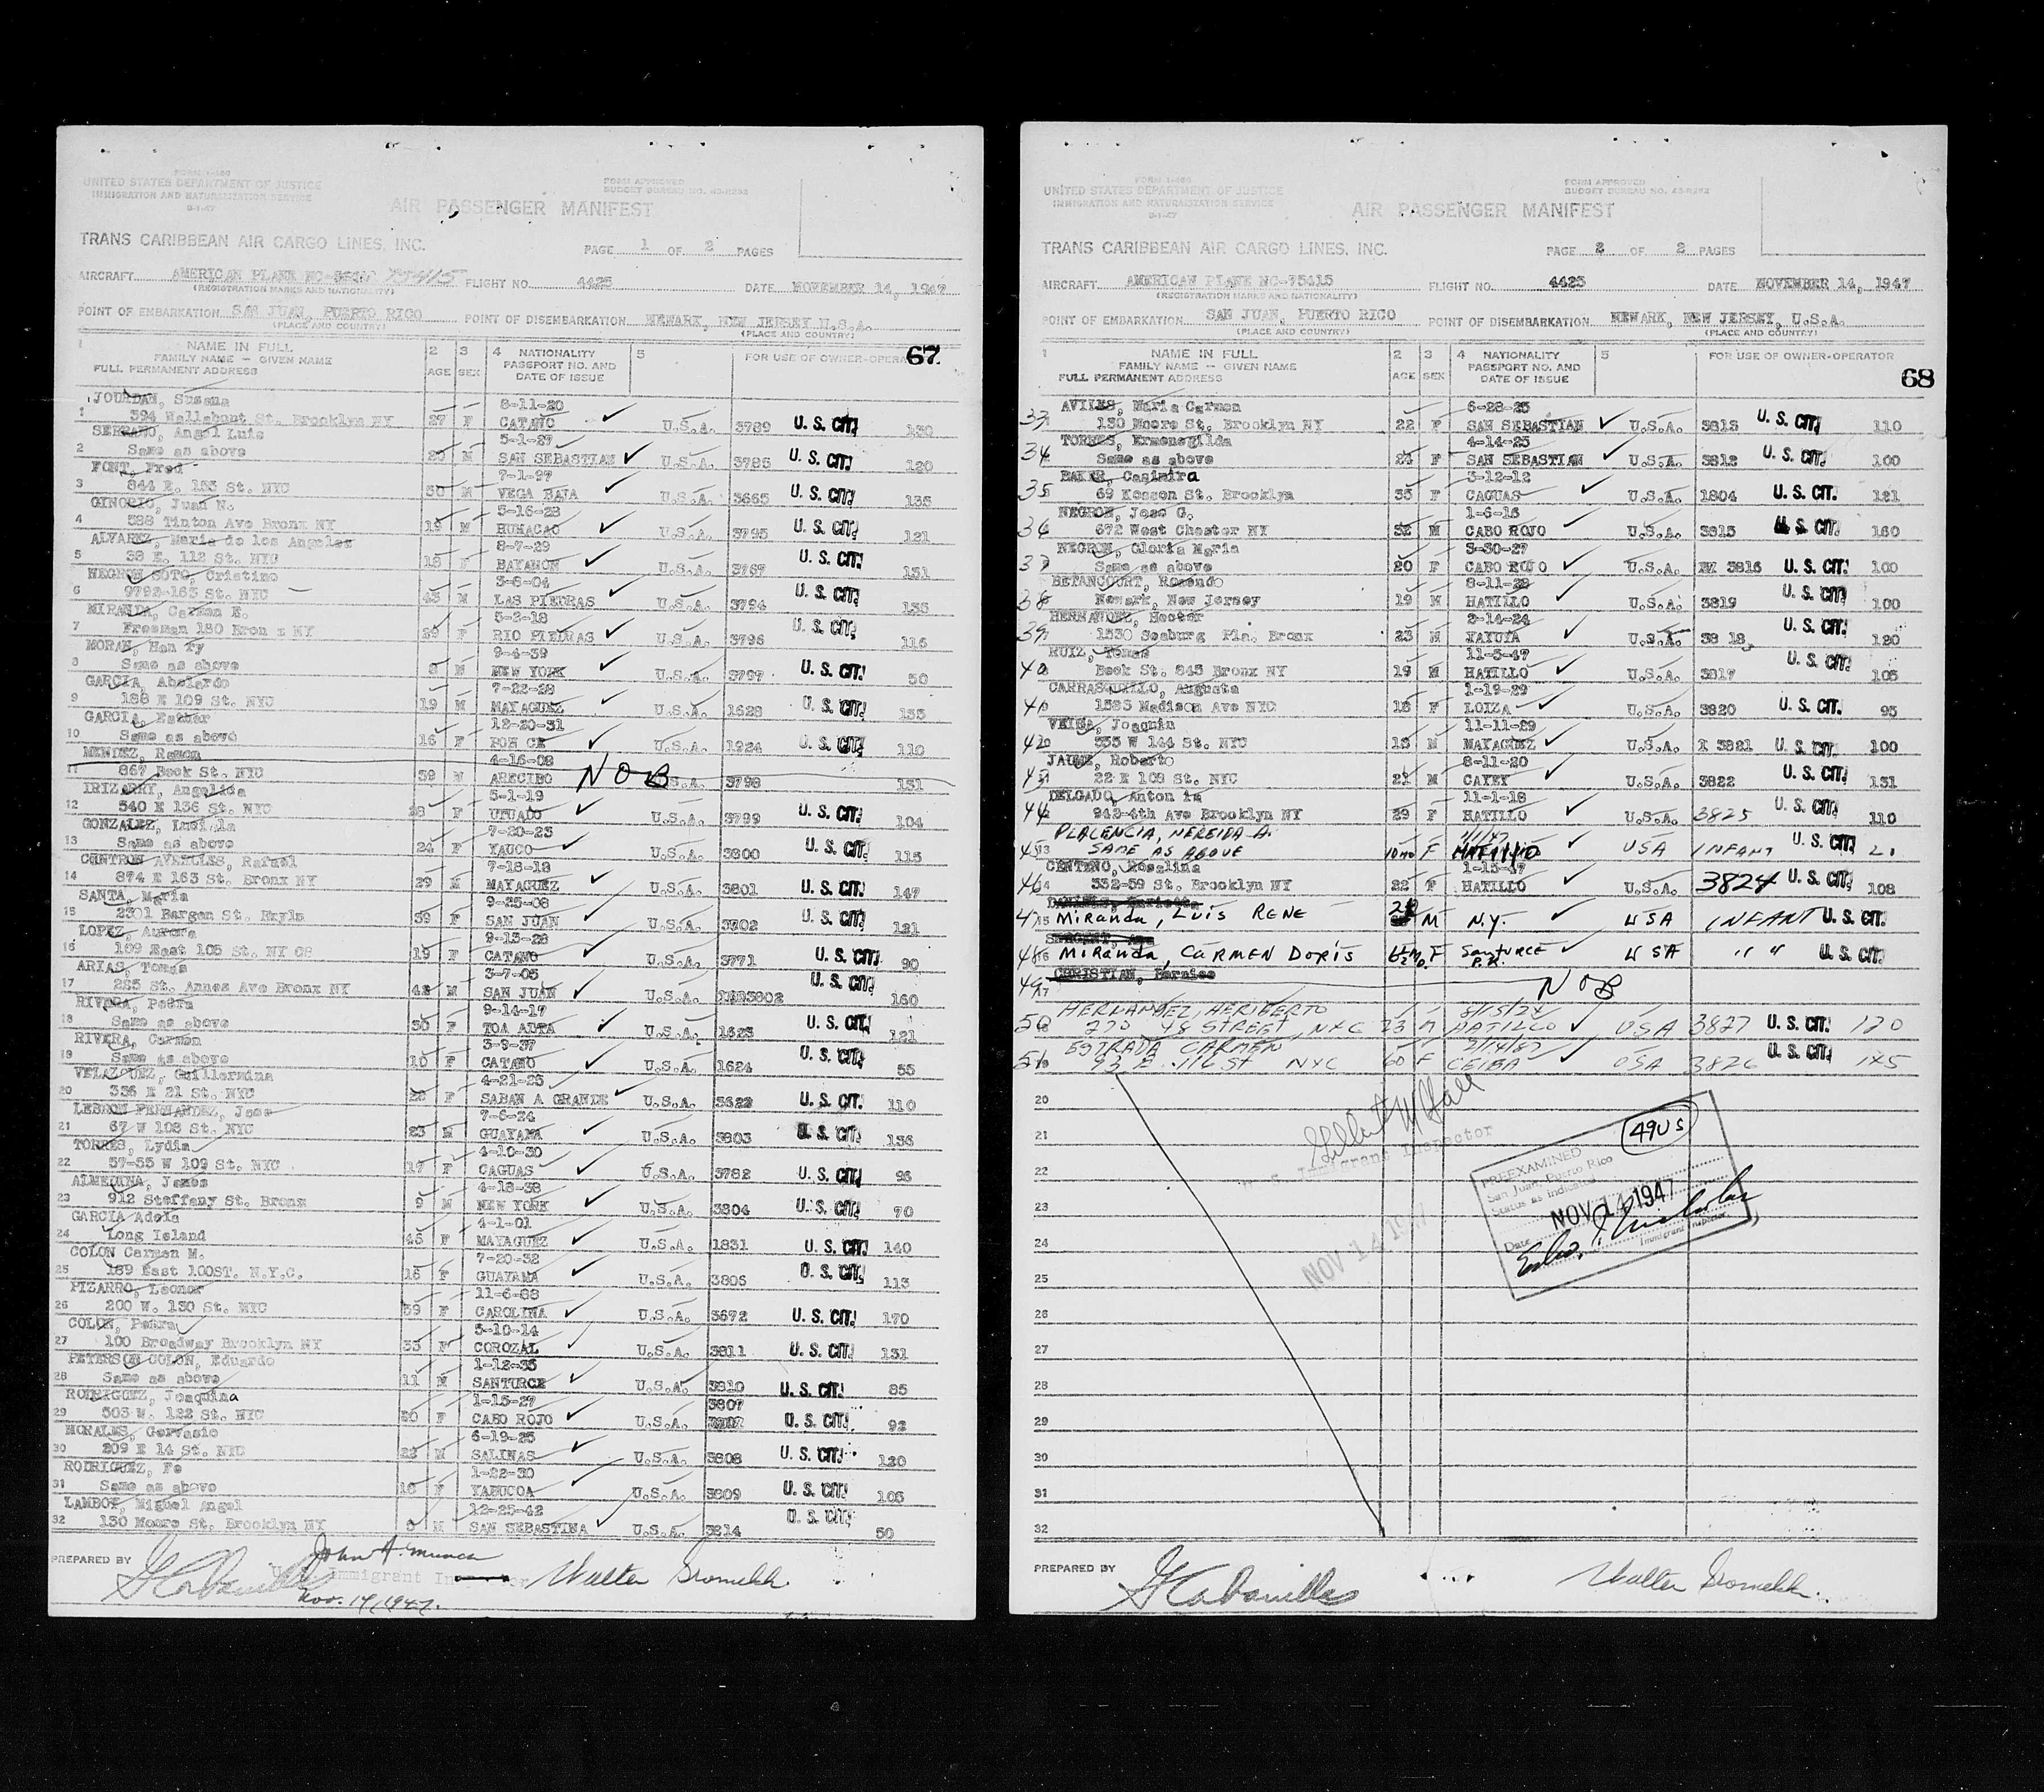 FORM I-466
UNITED STATES DEPARTMENT OF JUSTICE
IMMIGRATION AND NATURALIZATION SERVICE
FORM APPROVED
AIR PASSENGER MANIFEST
TRANS CARIBBEAN AIR CARGO LINES, INC.
PAGE 1 OF 2 PAGES
AIRCRAFT AMERICAN PLANE NC- 75415 FLIGHT NO. 4425 DATE NOVEMBER 14, 1947
(REGISTRATION MARKS AND NATIONALITY)
POINT OF EMBARKATION SAN JUAN, PUERTO RICO POINT OF DISEMBARKATION NEWARK, NEW JERSEY U.S.A.
(PLACE AND COUNTRY) (PLACE AND COUNTRY)
1 NAME IN FULL 2 3 4 NATIONALITY 5 FOR USE OF OWNER-OPERA 67
FAMILY NAME — GIVEN NAME AGE SEX PASSPORT NO. AND
FULL PERMANENT ADDRESS DATE OF ISSUE
JOURDAN, Susana 8-11-20
1 394 Wallabout St. Brooklyn NY 27 F CATAÑO U.S.A. 3789 U. S. CIT. 130
SERRANO, Angel Luis 5-1-27
2 Same as above 20 M SAN SEBASTIAN U.S.A. 3785 U. S. CIT. 120
FONT, Fred 7-1-27
3 844 E. 163 St. NYC M VEGA BAJA U.S.A. 3665 U. S. CIT. 135
GINORIO, Juan N. 5-16-28
4 588 Tinton Ave Bronx NY 19 M HUMACAO U.S.A. 3795 U. S. CIT. 121
ALVAREZ, Maria de los Angeles 8-7-29
5 38 E. 112 St. NYC 18 F BAYAMON U.S.A. 3767 U. S. CIT. 131
NEGRON SOTO, Cristino 3-8-04
6 163 St. NYC 43 M LAS PIEDRAS U.S.A. 3794 U. S. CIT. 135
MIRANDA, Carmen E. 5-2-18
7 Freeman 180 Bron x NY 29 F RIO PIEDRAS U.S.A. 3796 U. S. CIT. 116
MORAN, Han ry 9-4-39
8 Same as above 8 M NEW YORK U.S.A. 3797 U. S. CIT. 50
GARCIA, Abelardo 7-22-28
9 188 E 109 St. NYC 19 M MAYAGUEZ U.S.A. 1623 U. S. CIT. 135
GARCIA, Esther 12-20-31
10 Same as above 16 F PON CE U.S.A. 1924 U. S. CIT. 110
MENDEZ, Ramon 4-16-08
11 867 Beck St. NYC 39 M ARECIBO NOB U.S.A. 3798 131
IRIZARRY, Angelica 5-1-19
12 540 E 136 St. NYC 28 F UTUADO U.S.A. 3799 U. S. CIT. 104
GONZALEZ, Lucila 7-20-23
13 Same as above 24 F YAUCO U.S.A. 3800 U. S. CIT. 115
CINTRON AVILLES, Rafael 7-18-18
14 874 E 163 St. Bronx NY 29 M MAYAGUEZ U.S.A. 3801 U. S. CIT. 147
SANTA, Maria 9-25-08
15 2301 Bargen St. Bkyln 39 F SAN JUAN U.S.A. 3802 U. S. CIT. 121
LOPEZ, Aurora 9-13-28
16 169 East 105 St. NY 19 F CATAÑO U.S.A. 3771 U. S. CIT. 90
ARIAS, Tomas 3-7-05
17 285 St. Annes Ave Bronx NY 42 M SAN JUAN U.S.A. U. S. CIT. 160
RIVERA, Petra 9-14-17
18 Same as above 30 F TOA ALTA U.S.A. 1623 U. S. CIT. 121
RIVERA, Carmen 3-9-37
19 Same as above 10 F CATAÑO U.S.A. 1624 U. S. CIT. 55
VELAZQUEZ, Guillermina 4-21-25
20 336 E 21 St. NYC 22 F SABAN A GRANDE U.S.A. 3622 U. S. CIT. 110
LEBRON FERNANDEZ, Jose 7-6-24
21 67 W 108 St. NYC 23 M GUAYAMA U.S.A. 3803 U. S. CIT. 136
TORRES, Lydia 4-10-30
22 57-55 W 109 St. NYC 17 F CAGUAS U.S.A. 3782 U. S. CIT. 96
ALMEDINA, James 4-18-38
23 912 Steffany St. Bronx 9 M NEW YORK U.S.A. 3804 U. S. CIT. 70
GARCIA Adela 4-1-01
24 Long Island 46 F MAYAGUEZ U.S.A. 1831 U. S. CIT. 140
COLON Carmen M. 7-20-32
25 189 East 100ST. N.Y.C. 16 F GUAYAMA U.S.A. 3806 U. S. CIT. 113
PIZARRO, Leonor 11-6-88
26 200 W. 130 St. NYC 59 F CAROLINA U.S.A. 3672 U. S. CIT. 170
COLON, Petra 5-10-14
27 100 Broadway Brooklyn NY 33 F COROZAL U.S.A. 3811 U. S. CIT. 131
PETERSON COLON, Eduardo 1-12-36
28 Same as above 11 M SANTURCE U.S.A. 3810 U. S. CIT. 85
RODRIGUEZ, Joaquina 1-15-27 3807
29 503 W. 122 St. NYC 20 F CABO ROJO U.S.A. U. S. CIT. 92
MORALES, Gervasio 6-19-25
30 209 E 14 St. NYC 22 M SALINAS U.S.A. 3808 U. S. CIT. 120
RODRIGUEZ, Fe 1-22-30
31 Same as above 18 F YABUCOA U.S.A. 3809 U. S. CIT. 105
LAMBOY, Miguel Angel 12-25-42
32 130 Moore St. Brooklyn NY 5 M SAN SEBASTINA U.S.A. 3814 U. S. CIT. 50
PREPARED BY John A. Munca
Immigrant Walter
Nov. 14, 1947.
FORM I-466
UNITED STATES DEPARTMENT OF JUSTICE
IMMIGRATION AND NATURALIZATION SERVICE
FORM APPROVED
AIR PASSENGER MANIFEST
TRANS CARIBBEAN AIR CARGO LINES, INC.
PAGE 2 OF 2 PAGES
AIRCRAFT AMERICAN PLANE NC-75415 FLIGHT NO. 4425 DATE NOVEMBER 14, 1947
(REGISTRATION MARKS AND NATIONALITY)
POINT OF EMBARKATION SAN JUAN, PUERTO RICO POINT OF DISEMBARKATION NEWARK, NEW JERSEY, U.S.A.
(PLACE AND COUNTRY) (PLACE AND COUNTRY)
1 NAME IN FULL 2 3 4 NATIONALITY 5 FOR USE OF OWNER-OPERATOR
FAMILY NAME — GIVEN NAME AGE SEX PASSPORT NO. AND
FULL PERMANENT ADDRESS DATE OF ISSUE 68
AVILES, Maria Carmen 6-28-25
33 130 Moore St. Brooklyn NY 22 F SAN SEBASTIAN U.S.A. 3813 U. S. CIT. 110
TORRES, Ermenegilda 4-14-23
34 Same as above 24 F SAN SEBASTIAN U.S.A. 3812 U. S. CIT. 100
BAKER, Casimira 3-12-12
35 69 Kosson St. Brooklyn 35 F CAGUAS U.S.A. 1804 U. S. CIT. 121
NEGRON, Jose G. 1-6-15
36 672 West Chester NY 32 M CABO ROJO U.S.A. 3815 U. S. CIT. 160
NEGRON, Gloria Maria 3-30-27
37 Same as above 20 F CABO ROJO U.S.A. 3816 U. S. CIT. 100
BETANCOURT, Rosendo 8-11-28
38 Newark, New Jersey 19 M HATILLO U.S.A. 3819 U. S. CIT. 100
HERNANDEZ, Hector 2-14-24
39 1530 Seaburg Pla. Bronx 23 M JAYUYA U.S.A. 38 18 U. S. CIT. 120
RUIZ, Tomas 11-5-47
40 Beck St. 845 Bronx NY 19 M HATILLO U.S.A. 3817 U. S. CIT. 105
CARRASQUILLO, Augusta 1-19-29
41 1583 Madison Ave NYC 18 F LOIZA U.S.A. 3820 U. S. CIT. 95
VEIGA, Joaquin 11-11-29
42 535 W 144 St. NYC 18 M MAYAGUEZ U.S.A. 3821 U. S. CIT. 100
JAUME, Roberto 8-11-20
43 22 E 108 St. NYC 21 M CAYEY U.S.A. 3822 U. S. CIT. 131
DELGADO, Anton ia 11-1-18
44 942-4th Ave Brooklyn NY 29 F HATILLO U.S.A. 3825 U. S. CIT. 110
PLACENCIA, NEREIDA A. 1/1/47
45 SAME AS ABOVE 10 mo F HATILLO USA INFANT U. S. CIT. 21
CENTENO, Rosalina 1-15-47
46 532-59 St. Brooklyn NY 22 F HATILLO U.S.A. 3824 U. S. CIT. 108
47 Miranda, Luis RENE M N.Y. USA INFANT U. S. CIT.
48 Miranda, CARMEN DORIS F Santurce P.R. USA " " U. S. CIT.
49 CHRISTIAN, Bernice NOB
HERNANDEZ, HERIBERTO 8/15/24
50 770 48 STREET, NYC 23 M HATILLO USA 3827 U. S. CIT. 120
ESTRADA CARMEN
51 93 E. 116 St NYC 60 F CEIBA USA 3826 U. S. CIT. 145
20
21
22
23
24
25
26
27
28
29
30
31
32
Immigrant Inspector
NOV 14 1947
49 US
PREEXAMINED
San Juan, Puerto Rico
Status as indicated
NOV 14 1947
Date
Immigrant Inspector
PREPARED BY Walter